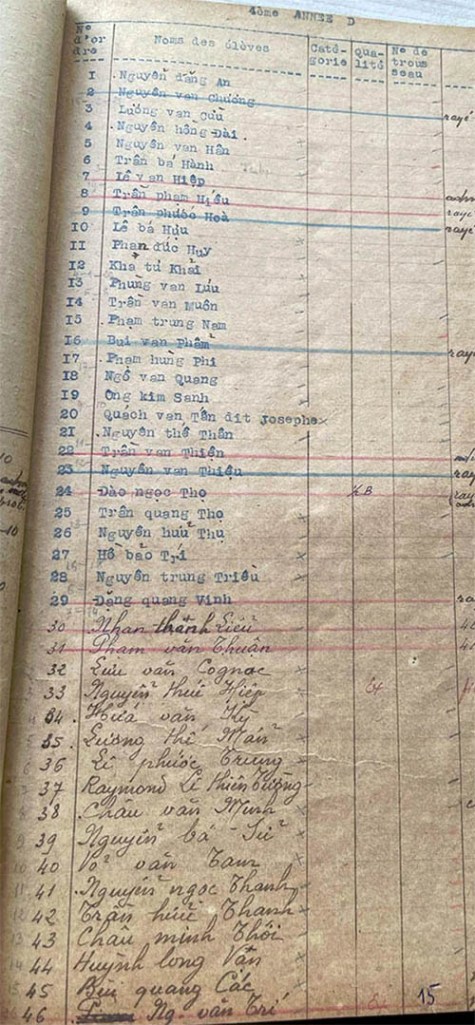 4ème ANNEE D
N° d'or dre Noms des élèves Caté- gorie Qua- lité N° de trous seau
1 Nguyên dăng An
2 Nguyên van Chương rayé
3 Lương van Cưu
4 Nguyên hông Dài.
5 Nguyên van Hân
6 Trân bá Hành
7 Lê van Hiệp
8 Trân phạm Hiếu
9 Trân phước Hoà rayé
10 Lê bá Hưu rayé
11 Phan đức Huy
12 Kha tú Khai
13 Phùng van Lưu
14 Trân van Muôn
15 Phạm trung Nam
16 Bui van Phẩm rayé
17 Phạm hùng Phi
18 Ngô van Quang
19 Ông kim Sanh
20 Quách van Tân dit Josephe x
21 Nguyên thế Thân
22 Trân van Thiện
23 Nguyên van Thiệu
24 Dào ngọc Thọ
25 Trân quang Thọ
26 Nguyên huu Thụ
27 Hồ bảo Trí
28 Nguyên trung Triều
29 Dặng quang Vinh
30 Nhan thành Liêu
31 Pham văn Chuân
32 Lưu văn Cognac
33 Nguyễn thuc Hiệp
34 Hứa văn Kỳ
35 Lương thế Mẫn
36 Lê phước Trung
37 Raymond Lê thiên Tường
38 Châu văn Minh
39 Nguyễn bá Sử
40 Võ văn Tam
41 Nguyễn ngọc Thanh
42 Trần hữu Thanh
43 Châu minh Thới
44 Huỳnh long Vân
45 Bui quang Các 15
46 Ng. văn Trí